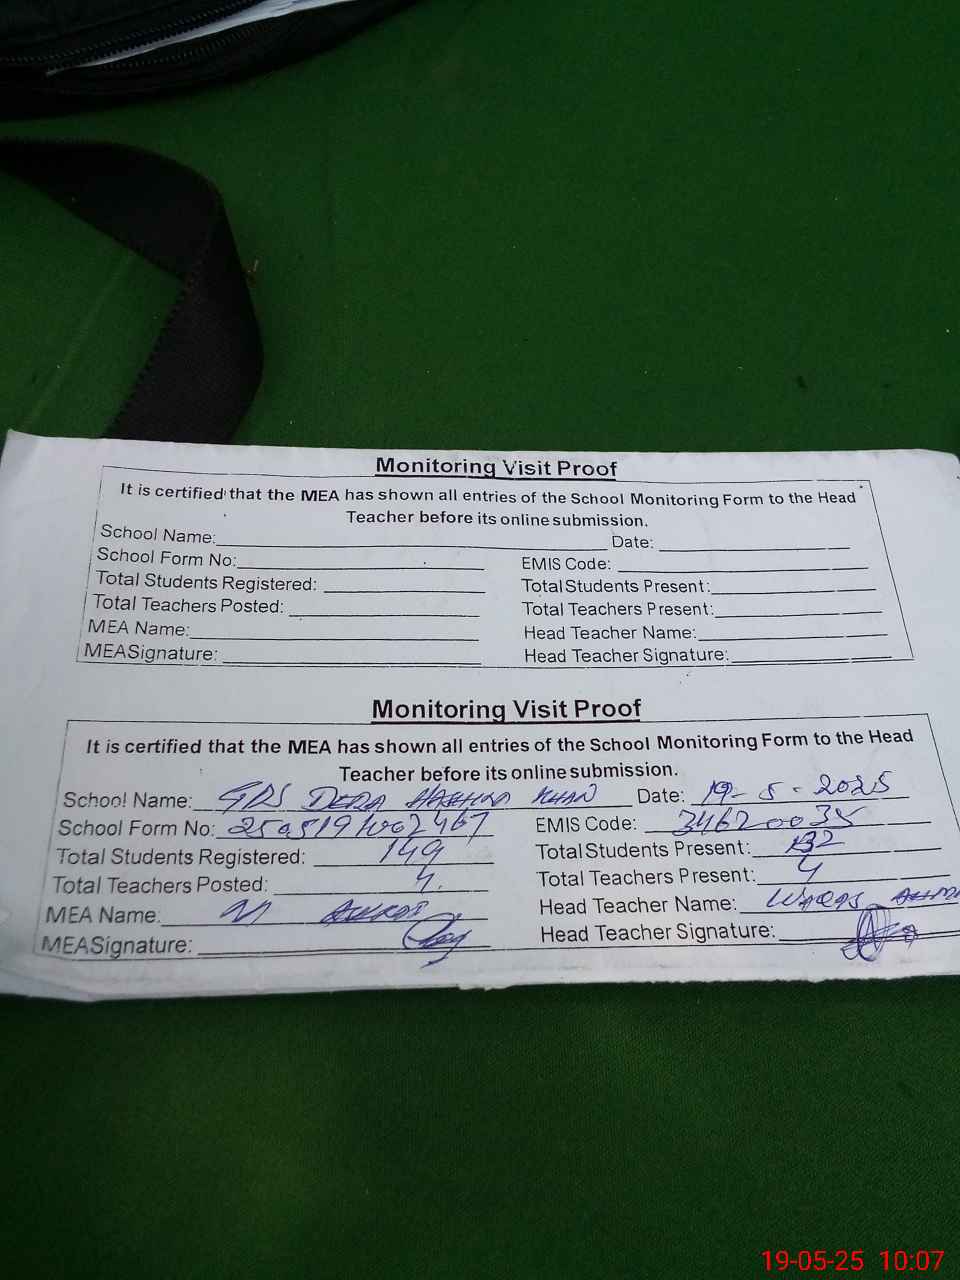 Monitoring Visit Proof
It is certified that the MEA has shown all entries of the School Monitoring Form to the Head
Teacher before its online submission.
School Name: Date:
School Form No: EMIS Code:
Total Students Registered: Total Students Present:
Total Teachers Posted: Total Teachers Present:
MEA Name: Head Teacher Name:
MEASignature: Head Teacher Signature:
Monitoring Visit Proof
It is certified that the MEA has shown all entries of the School Monitoring Form to the Head
Teacher before its online submission.
School Name: GPS DERA KHAN Date: 19-5-2025
School Form No: EMIS Code: 34620035
Total Students Registered: 149 Total Students Present: 132
Total Teachers Posted: 4. Total Teachers Present: 4
MEA Name: M Head Teacher Name: WAQAS
MEASignature: Head Teacher Signature:
19-05-25 10:07